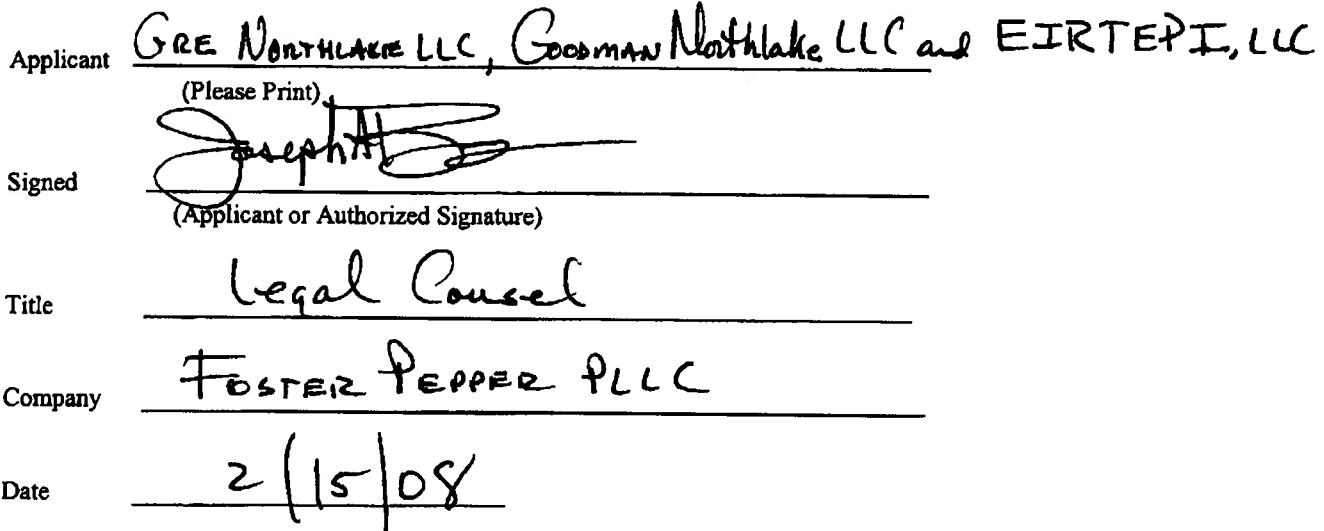 Applicant GRE NORTHLAKE LLC, GOODMAN Northlake LLC and EIRTEPI, LLC
(Please Print)
Signed Joseph A
(Applicant or Authorized Signature)
Title Legal Cousel
Company FOSTER PEPPER PLLC
Date 2/15/08